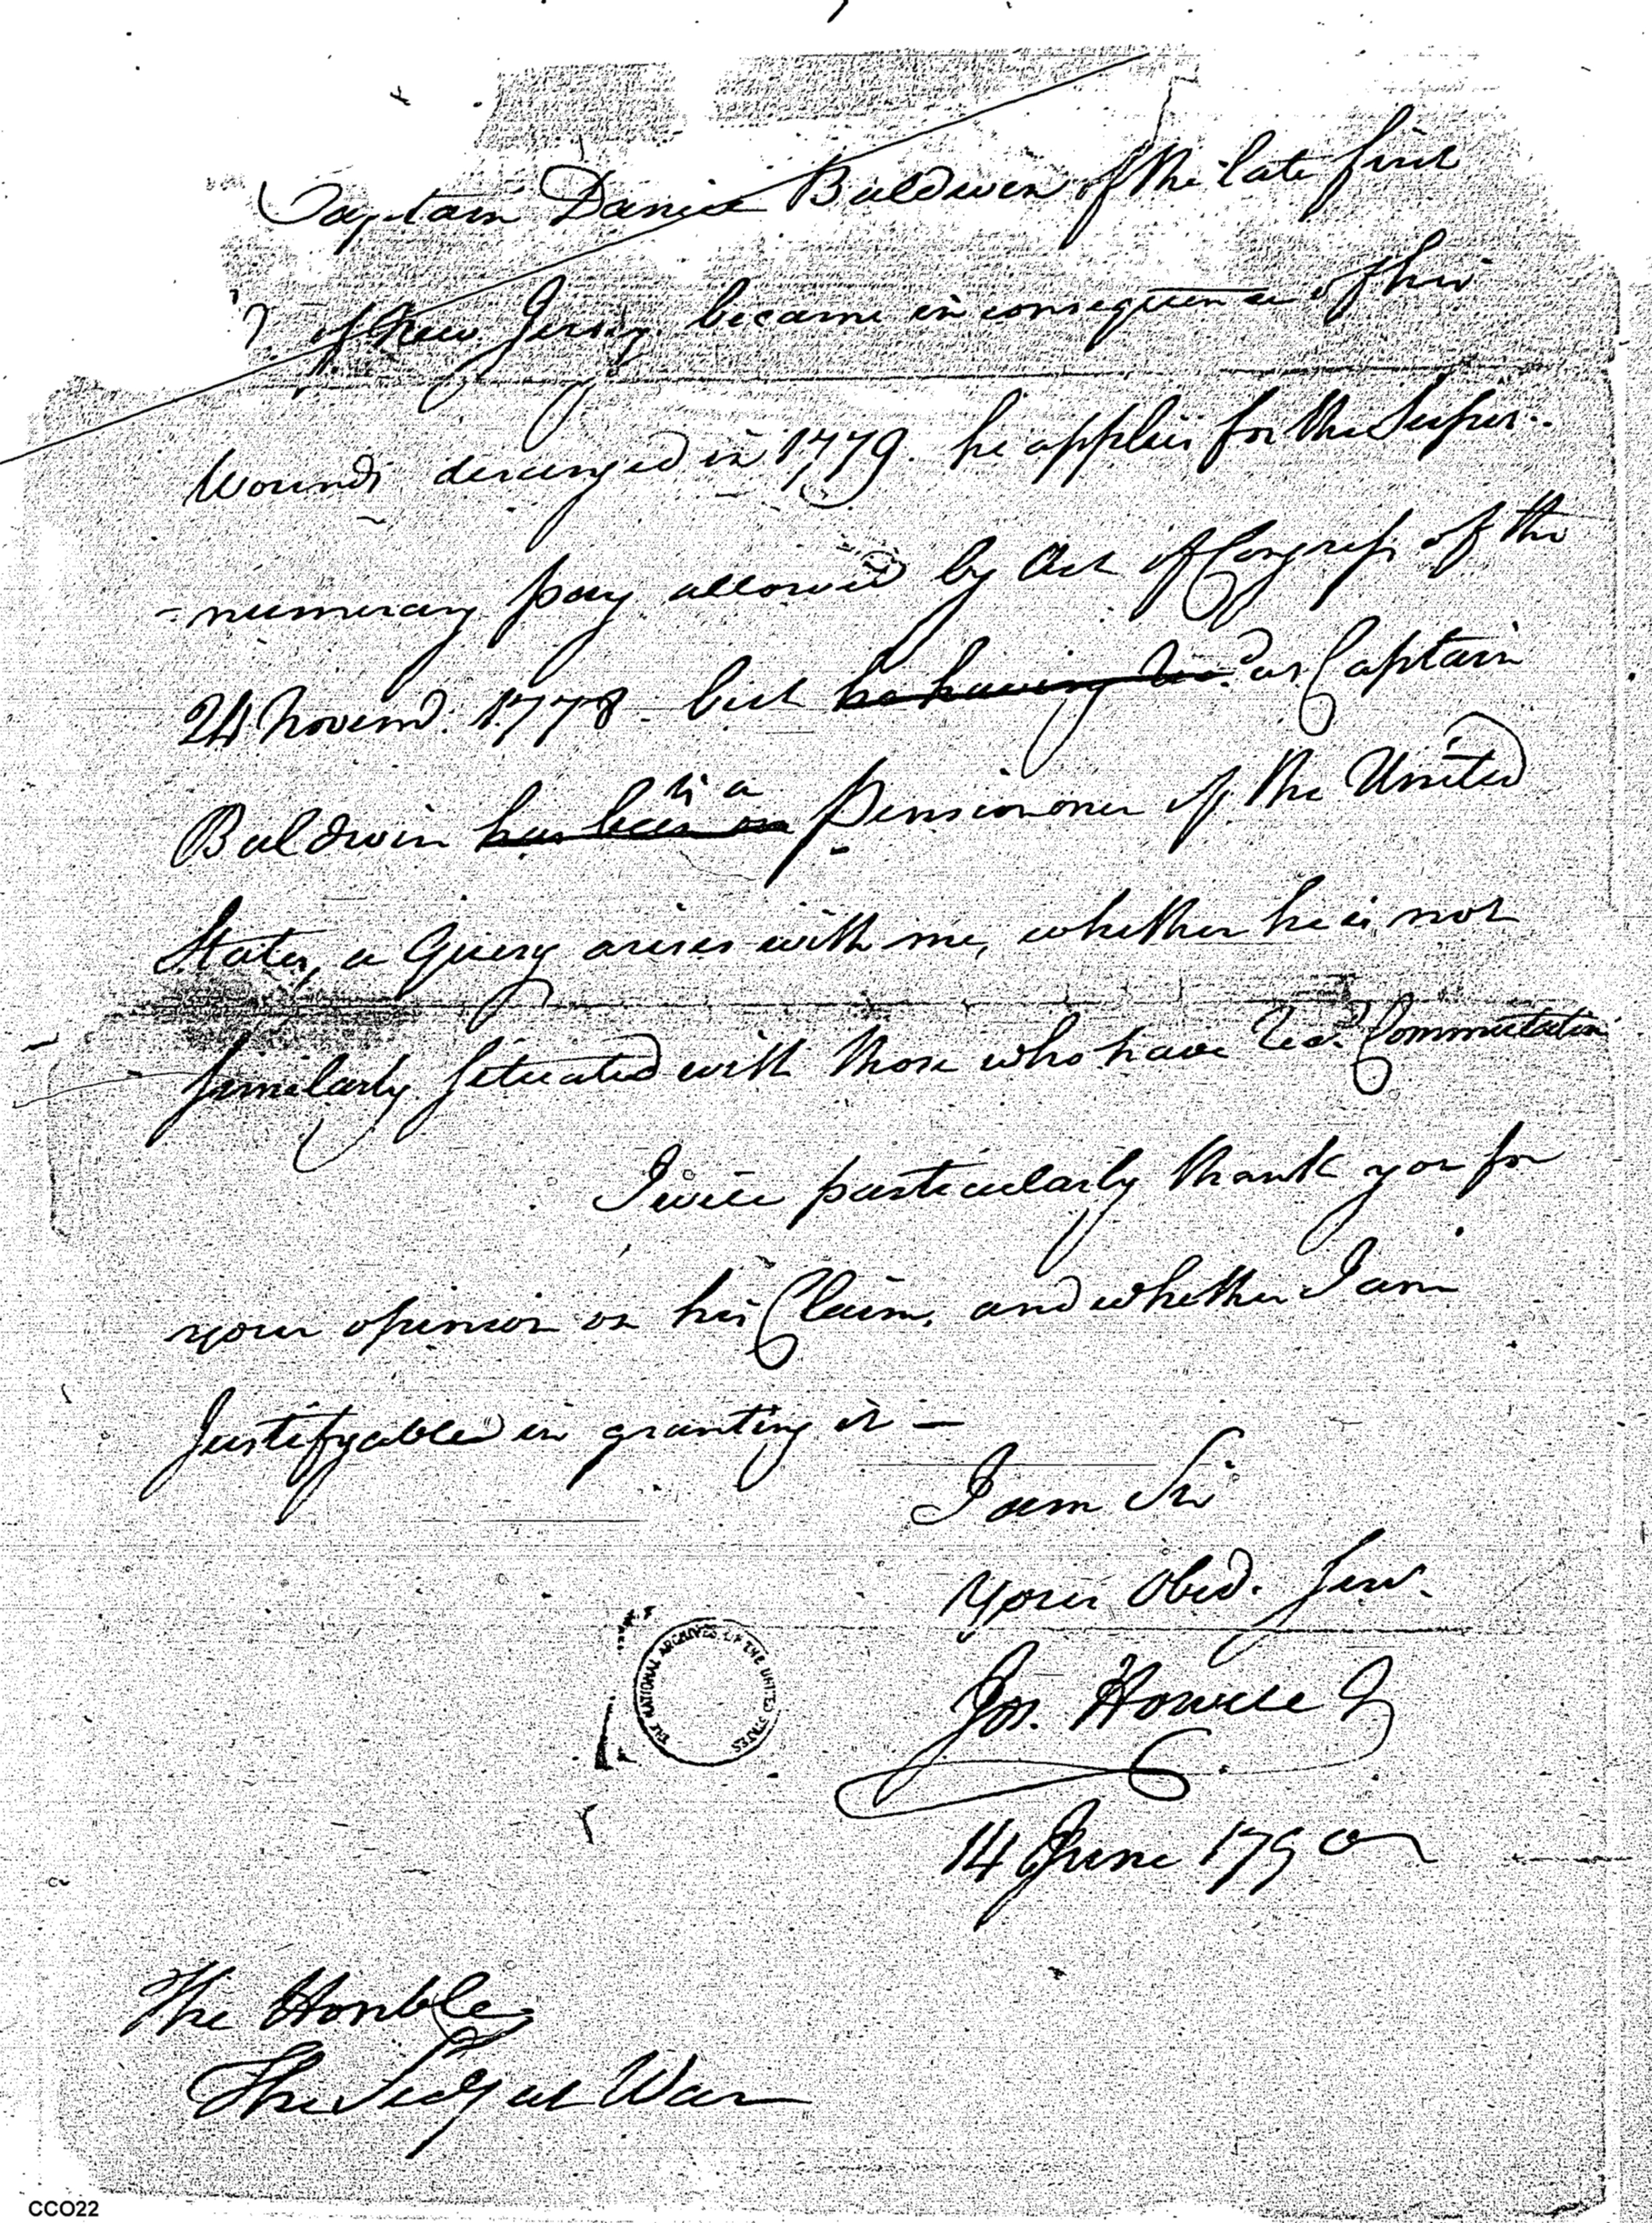 Captain Daniel Baldwin of the late first
of New Jersey became in consequence of his
Wounds deranged in 1779. he applies for the Super-
-numerary pay allowed by Act of Congress of the
24 Novemd. 1778. but he having recd. as Captain
Baldwin has been an is a Pensiononer of the United
States, a Query arises with me, whether he is not
similarly situated with those who have recd. Commutation
I will particularly thank you for
your opinion on his Claim, and whether I am
Justifyabled in granting it —
I am Sir
Your Obed. Serv.
Jos. Howell J
14 June 1790
THE NATIONAL ARCHIVES OF THE UNITED STATES
The Honble
The Secy at War
CCO22